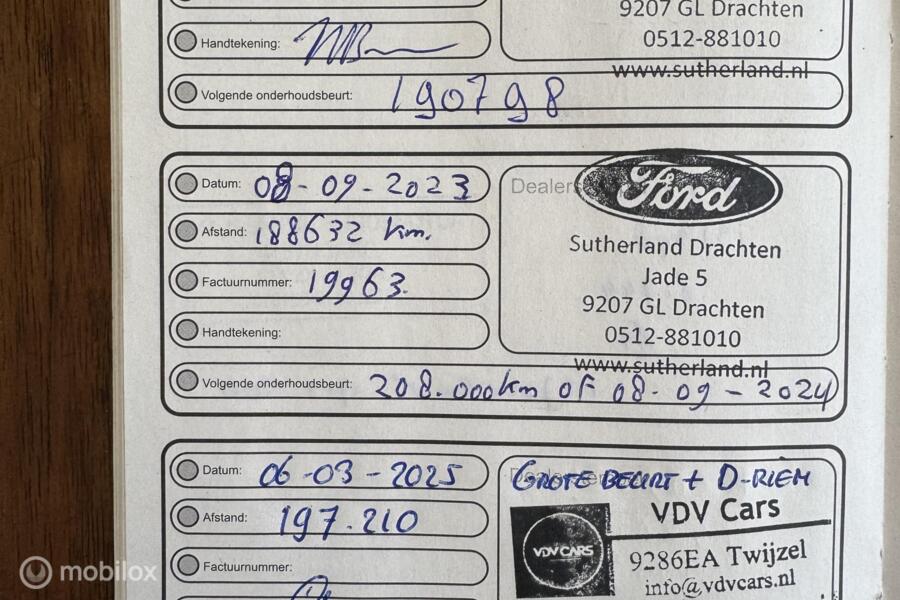 9207 GL Drachten
Handtekening:
0512-881010
www.sutherland.nl
Volgende onderhoudsbeurt: 190798
Datum: 08-09-2023
Dealers
Ford
Afstand: 188632 km.
Sutherland Drachten
Jade 5
Factuurnummer: 19963.
9207 GL Drachten
Handtekening:
0512-881010
www.sutherland.nl
Volgende onderhoudsbeurt: 208.000km OF 08-09-2024
Datum: 06-03-2025
GROTE BEURT + D-RIEM
Afstand: 197.210
VDV Cars
VDV CARS
Factuurnummer:
9286EA Twijzel
info@vdvcars.nl
mobilox